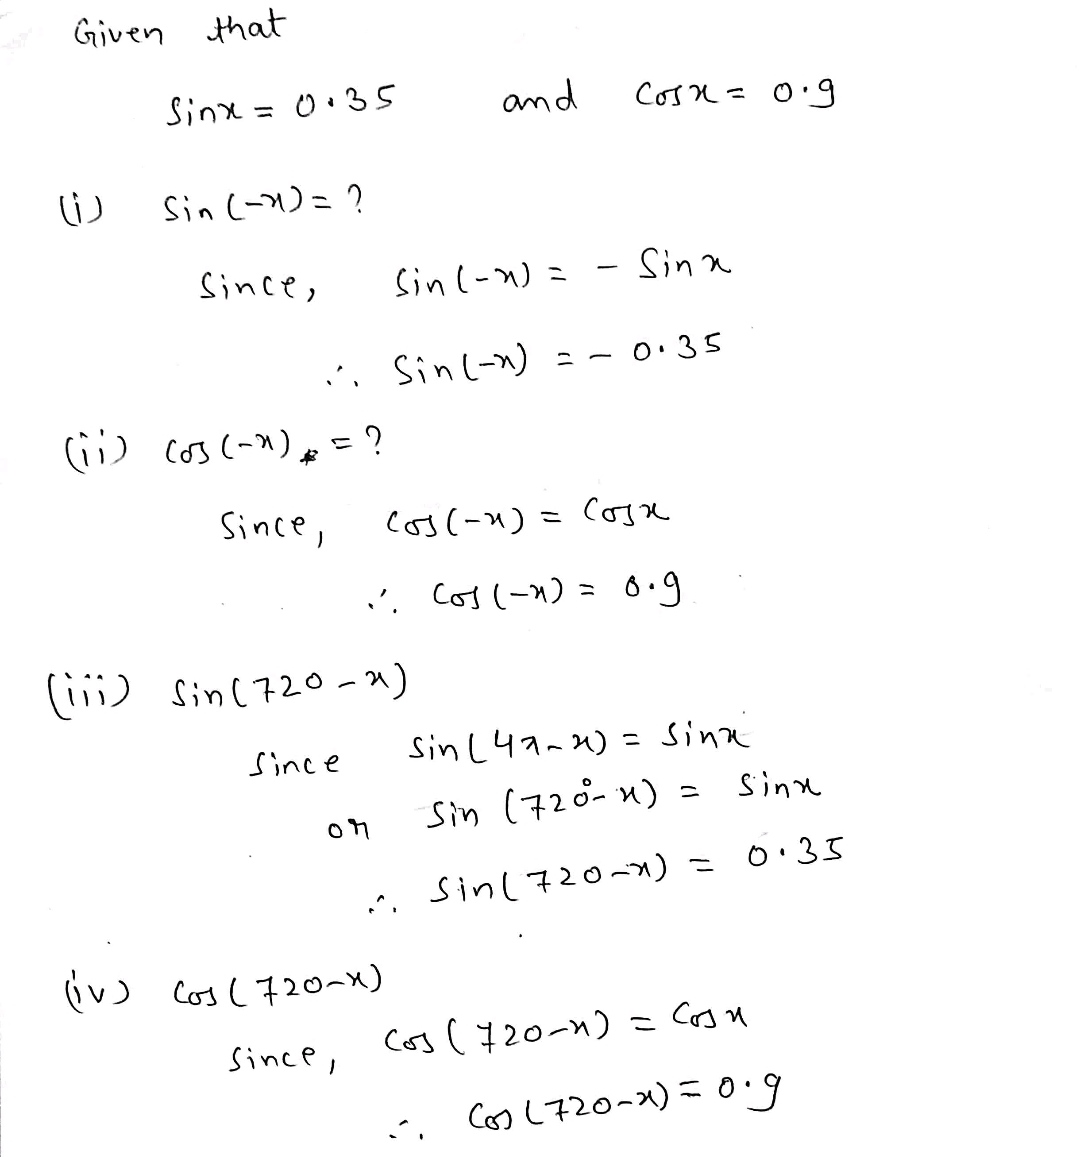 Given that
Sinx = 0.35 and Cosx = 0.9
(i) Sin(-x) = ?
Since, Sin(-x) = - Sinx
∴ Sin(-x) = - 0.35
(ii) Cos(-x) = ?
Since, Cos(-x) = Cosx
∴ Cos(-x) = 0.9
(iii) Sin(720-x)
Since Sin(4π-x) = Sinx
or Sin(720°-x) = Sinx
∴ Sin(720-x) = 0.35
(iv) Cos(720-x)
Since, Cos(720-x) = Cosx
∴ Cos(720-x) = 0.9